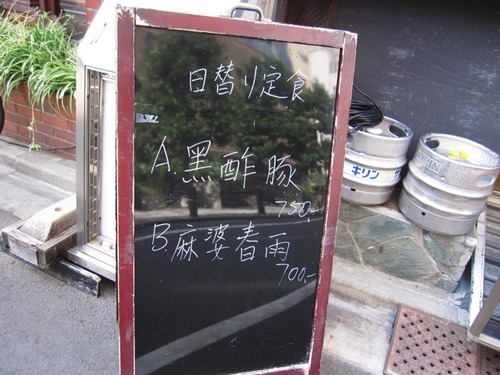 日替り定食
A.黒酢豚
750.-
B.麻婆春雨
700.-
キリン
KIRIN